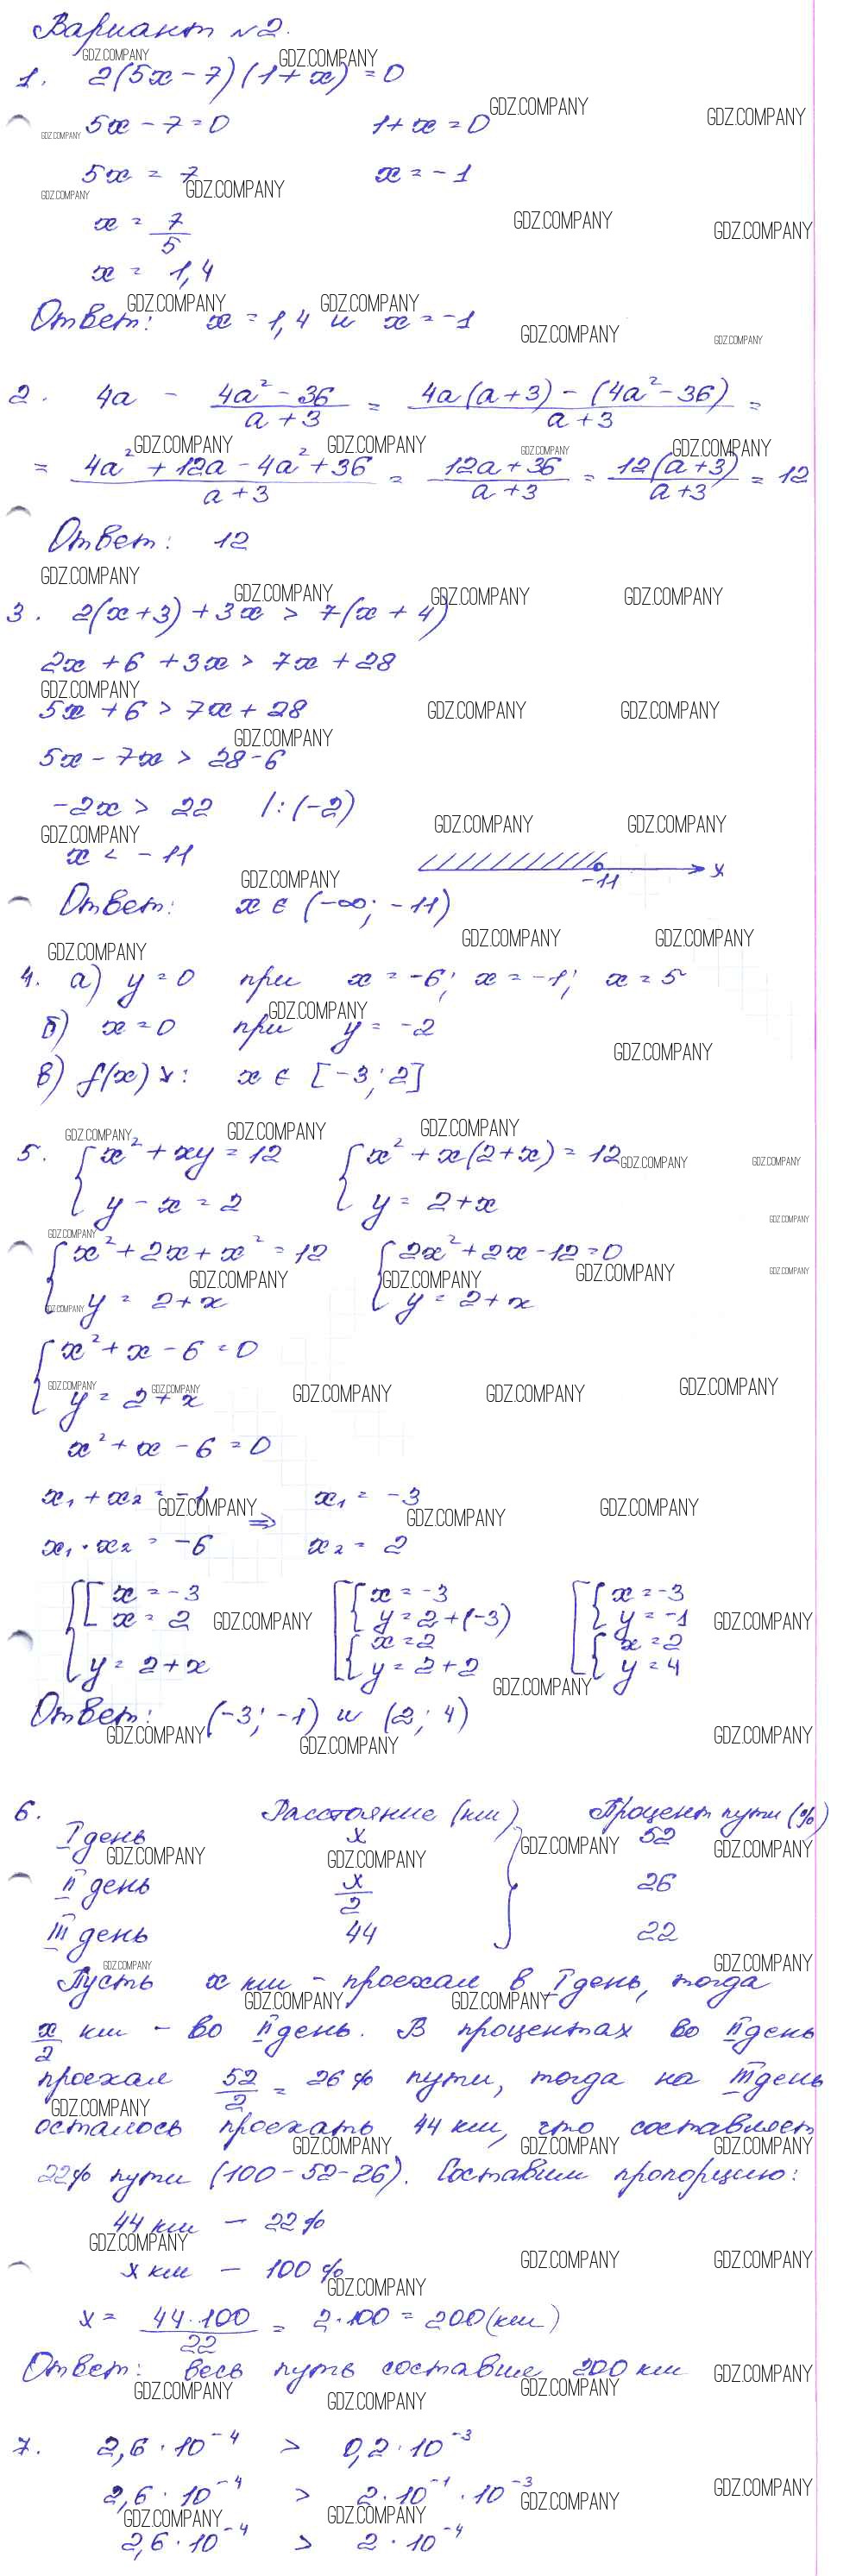 Вариант №2.
1. 2(5x - 7)(1 + x) = 0
5x - 7 = 0 1 + x = 0
5x = 7 x = -1
x = 7/5
x = 1,4
Ответ: x = 1,4 и x = -1
2. 4a - (4a² - 36)/(a + 3) = (4a(a + 3) - (4a² - 36))/(a + 3) =
= (4a² + 12a - 4a² + 36)/(a + 3) = (12a + 36)/(a + 3) = 12(a + 3)/(a + 3) = 12
Ответ: 12
3. 2(x + 3) + 3x > 7(x + 4)
2x + 6 + 3x > 7x + 28
5x + 6 > 7x + 28
5x - 7x > 28 - 6
-2x > 22 /: (-2)
x < -11
-11 x
Ответ: x ∈ (-∞; -11)
4. а) y = 0 при x = -6; x = -1; x = 5
б) x = 0 при y = -2
в) f(x)↘: x ∈ [-3; 2]
5. { x² + xy = 12 { x² + x(2 + x) = 12
y - x = 2 y = 2 + x
{ x² + 2x + x² = 12 { 2x² + 2x - 12 = 0
y = 2 + x y = 2 + x
{ x² + x - 6 = 0
y = 2 + x
x² + x - 6 = 0
x₁ + x₂ = -1 x₁ = -3
⇒
x₁ · x₂ = -6 x₂ = 2
{ [ x = -3 [ { x = -3 [ { x = -3
x = 2 y = 2 + (-3) y = -1
{ x = 2 { x = 2
y = 2 + x y = 2 + 2 y = 4
Ответ: (-3; -1) и (2; 4)
6. Расстояние (км) Процент пути (%)
I день x 52
II день x/2 26
III день 44 22
Пусть x км - проехал в I день, тогда
x/2 км - во II день. В процентах во II день
проехал 52/2 = 26% пути, тогда на III день
осталось проехать 44 км, что составляет
22% пути (100 - 52 - 26). Составим пропорцию:
44 км - 22%
x км - 100%
x = 44·100/22 = 2·100 = 200 (км)
Ответ: весь путь составил 200 км
7. 2,6 · 10⁻⁴ > 0,2 · 10⁻³
2,6 · 10⁻⁴ > 2 · 10⁻¹ · 10⁻³
2,6 · 10⁻⁴ > 2 · 10⁻⁴
GDZ.COMPANY